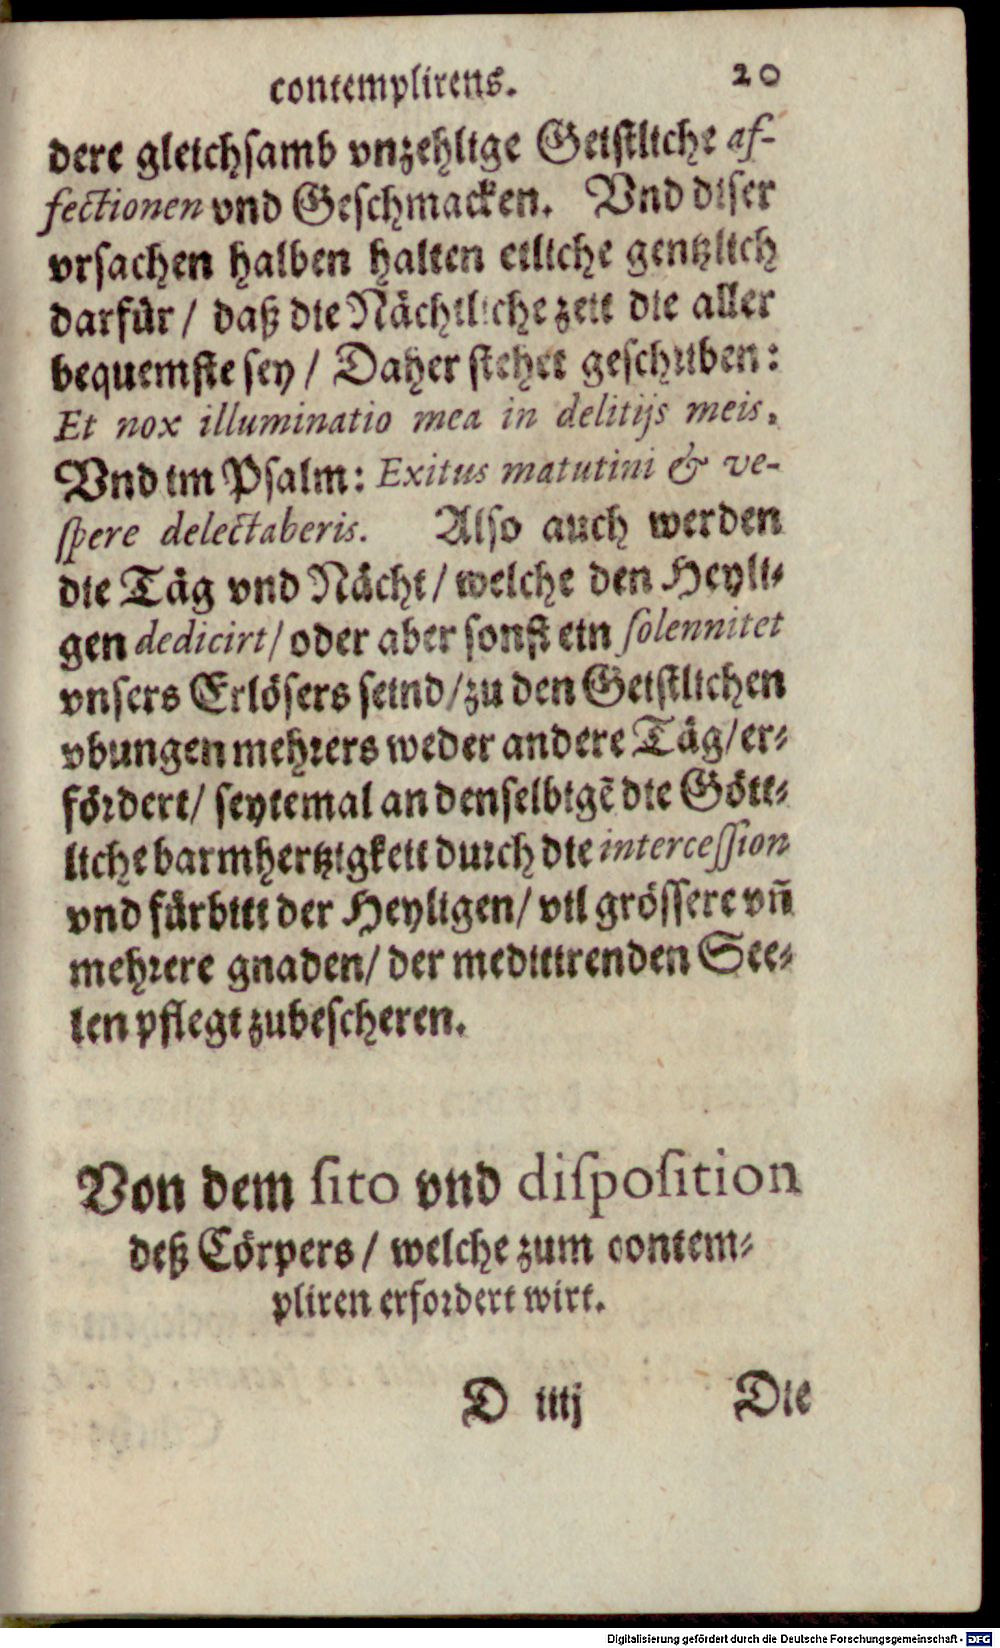 contemplirens. 20
dere gleichsamb vnzehlige Geistliche af-
fectionen vnd Geschmacken. Vnd diser
vrsachen halben halten etliche gentzlich
darfür / daß die Nächtliche zeit die aller
bequemste sey / Daher stehet geschriben:
Et nox illuminatio mea in delitijs meis.
Vnd im Psalm: Exitus matutini & ve-
spere delectaberis. Also auch werden
die Täg vnd Nächt / welche den Heyli-
gen dedicirt / oder aber sonst ein solennitet
vnsers Erlösers seind / zu den Geistlichen
vbungen mehrers weder andere Täg / er-
fördert / seytemal an denselbigẽ die Gött-
liche barmhertzigkeit durch die intercession
vnd fürbitt der Heyligen / vil grössere vñ
mehrere gnaden / der meditirenden See-
len pflegt zubescheren.
Von dem sito vnd disposition
deß Cörpers / welche zum contem-
pliren erfordert wirt.
D iiij Die
Digitalisierung gefördert durch die Deutsche Forschungsgemeinschaft - DFG